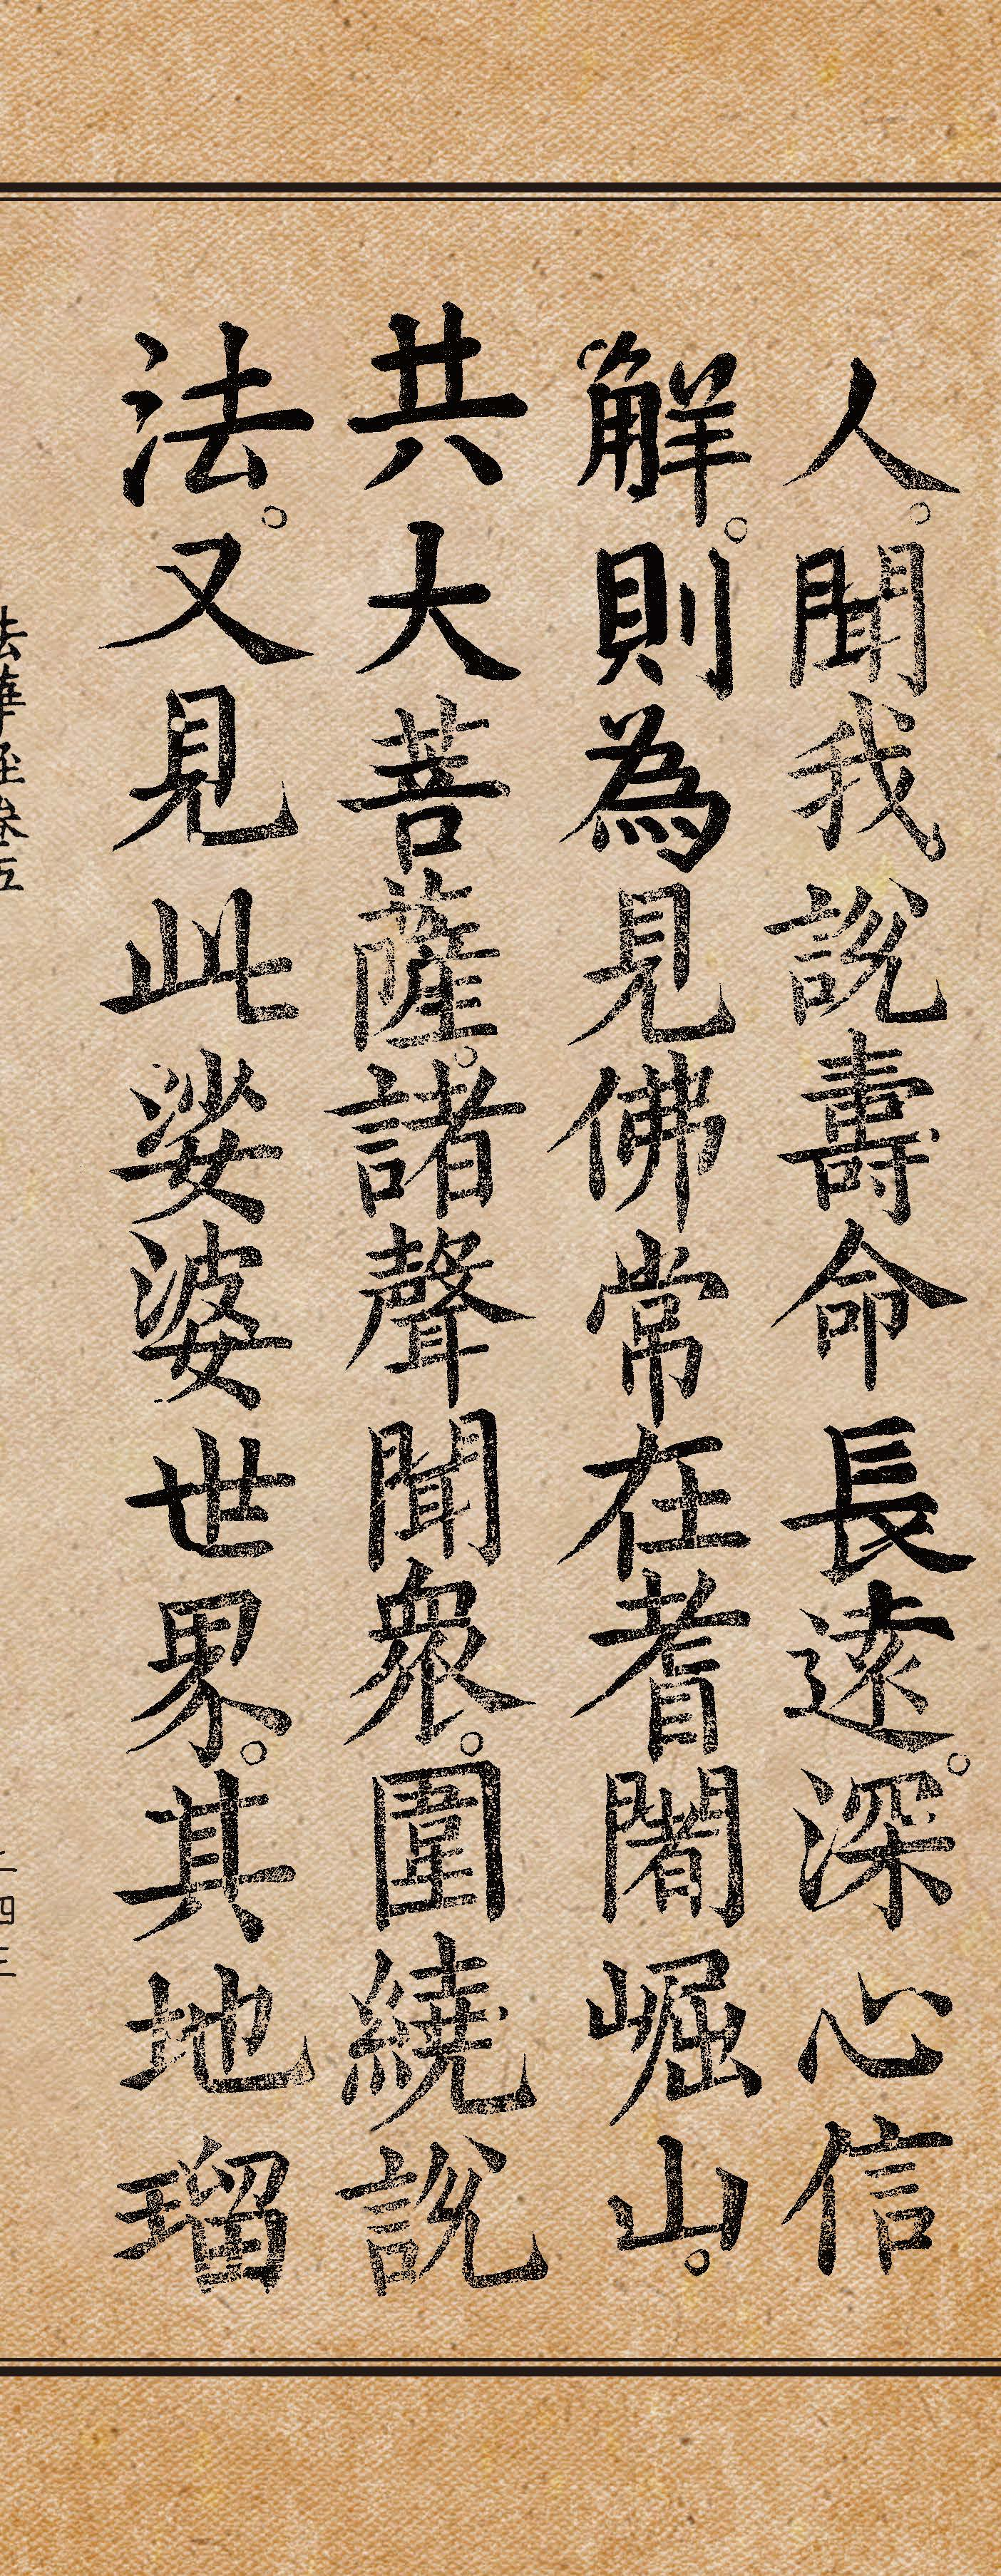 人。聞我說壽命長遠。深心信
解。則為見佛常在耆闍崛山。
共大菩薩。諸聲聞衆。圍繞說
法。又見此娑婆世界。其地瑠
法華經卷五
二四三